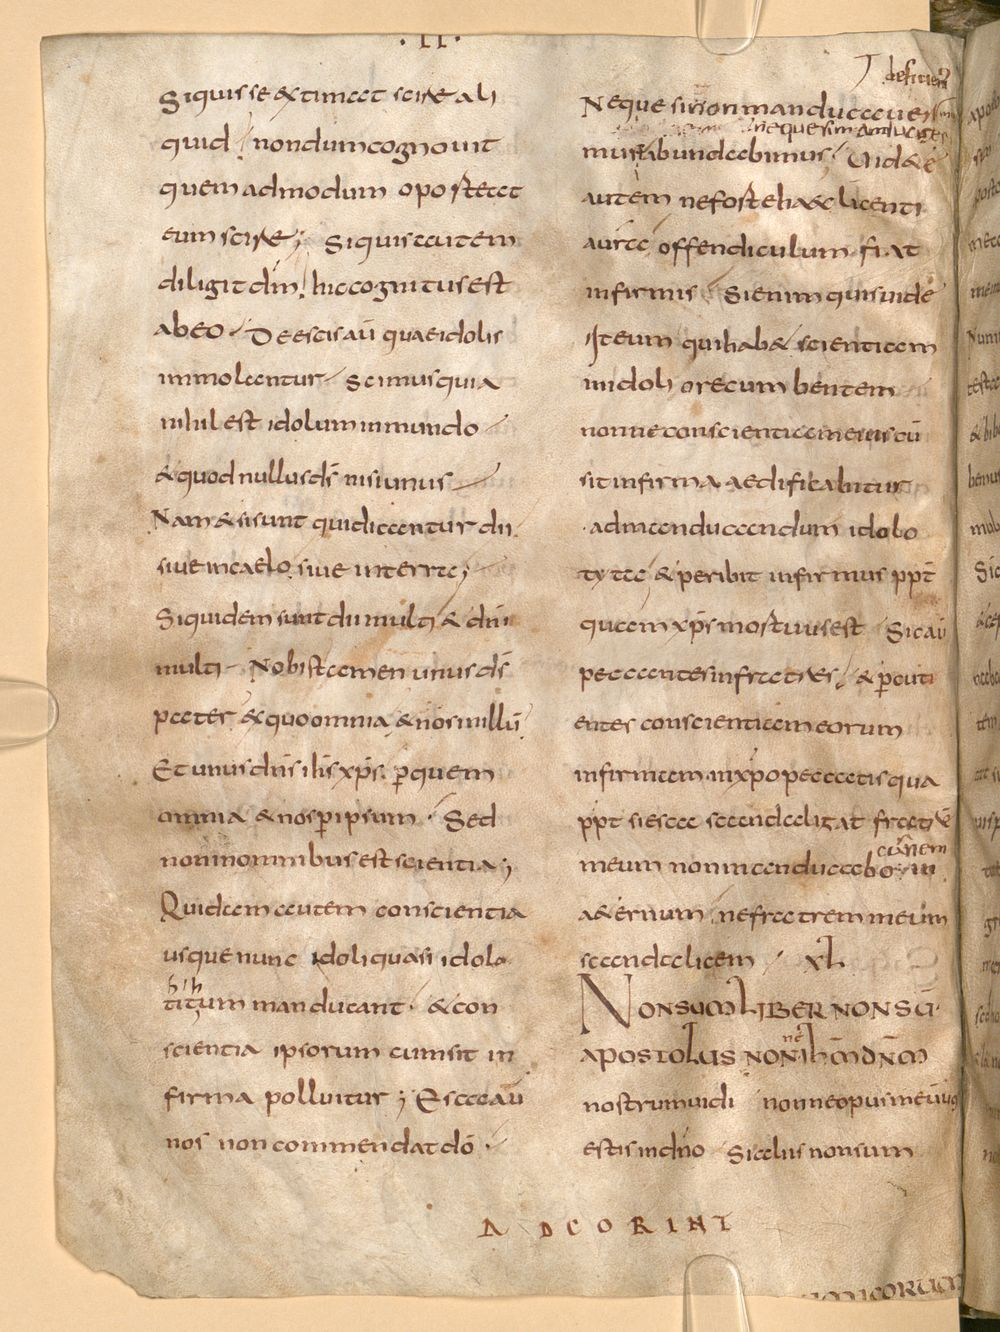 ·II·
Siquis se &timat scire ali
quid nondum cognovit
quem admodum oporteat
eum scire; Siquis autem
diligit dm̄ hic cognitus est
ab eo. De escis aū quae idolis
immolantur Scimus quia
nihil est idolum in mundo
& quod nullus ds̄ nisi unus
Nam & si sunt qui dicantur dii
sive in caelo sive in terra;
Siquidem sunt dii multi & dn̄i
multi Nobis tamen unus ds̄
pater ex quo omnia & nos in illū
Et unus dn̄s ih̄s xp̄s. p̄quem
omnia & nos p̄ ipsum. Sed
non in omnibus est scientia;
Quidam autem conscientia
usque nunc idoli quasi idolo
titum manducant. & con
scientia ipsorum cum sit in
firma polluitur; Esca aū
nos non commendat dō.
deficiem̄
Neque si non manducaveri
neque si manducaveri
mus abundabimus. Vid&e
autem ne forte haec licenti
a vr̄a offendiculum fiat
infirmis Si enim quis vide
rit eum qui hab& scientiam
in idolio recumbentem
nonne conscientia eius cū
sit infirma aedificabitur
ad manducandum idolo
tyta & peribit infirmus ppt̄
quem xp̄s mortuus est Sic aū
peccantes in fratres, & p̄cuti
entes conscientiam eorum
infirmam in xp̄o peccatis qua
ppt si esca scandaligat fratrē
carnem
meum non manducabo in
a&ernum ne fratrem meum
scandalicem XL
NON SUM LIBER NON SŪ
ne
APOSTOLUS NON IHM̄ DNM̄
nostrum vidi nonne opus meū vos
estis in dn̄o Si aliis non sum
AD CORINT